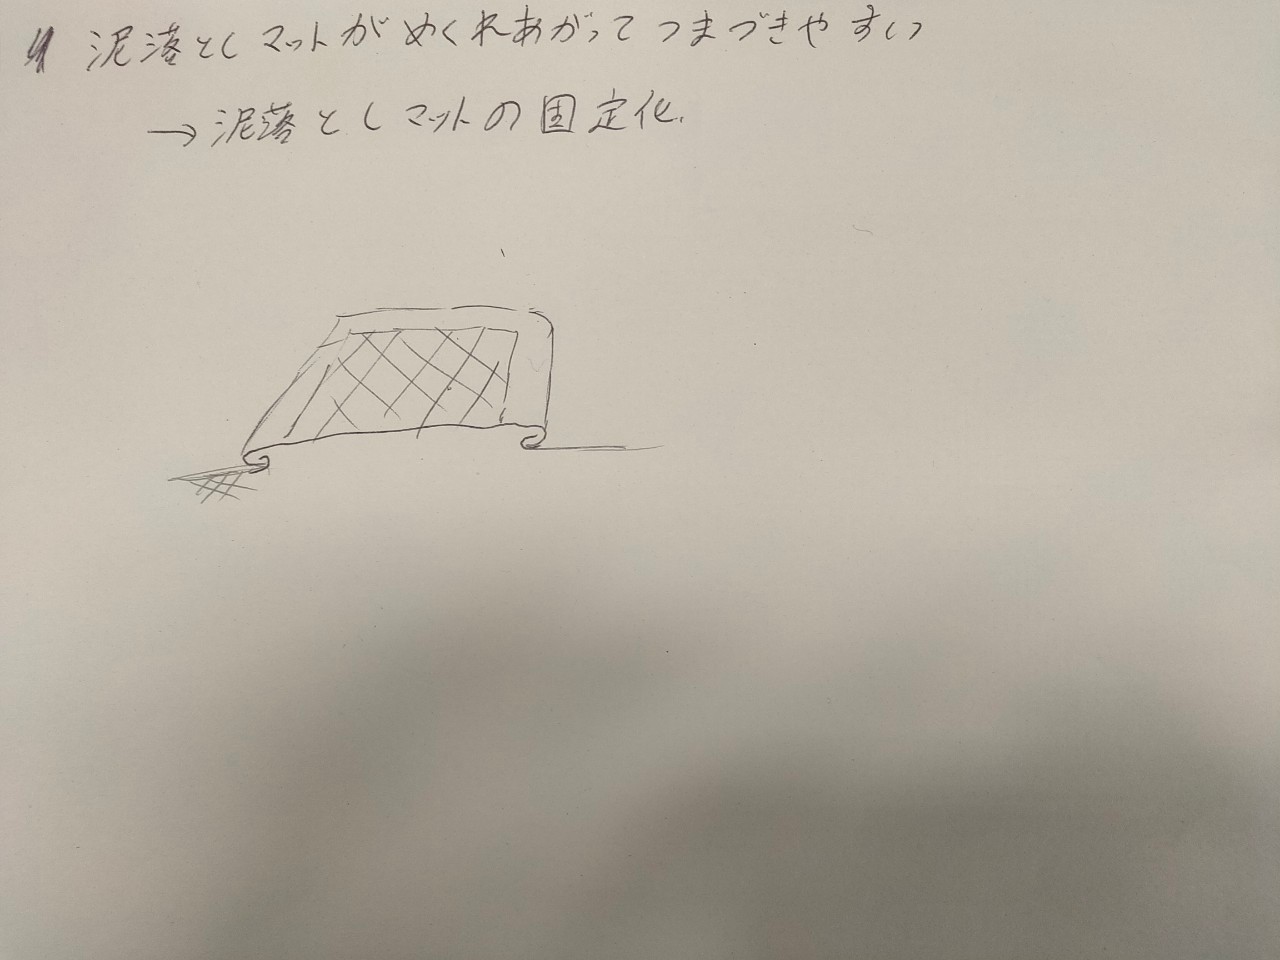 泥落としマットがめくれあがってつまづきやすい
→泥落としマットの固定化.